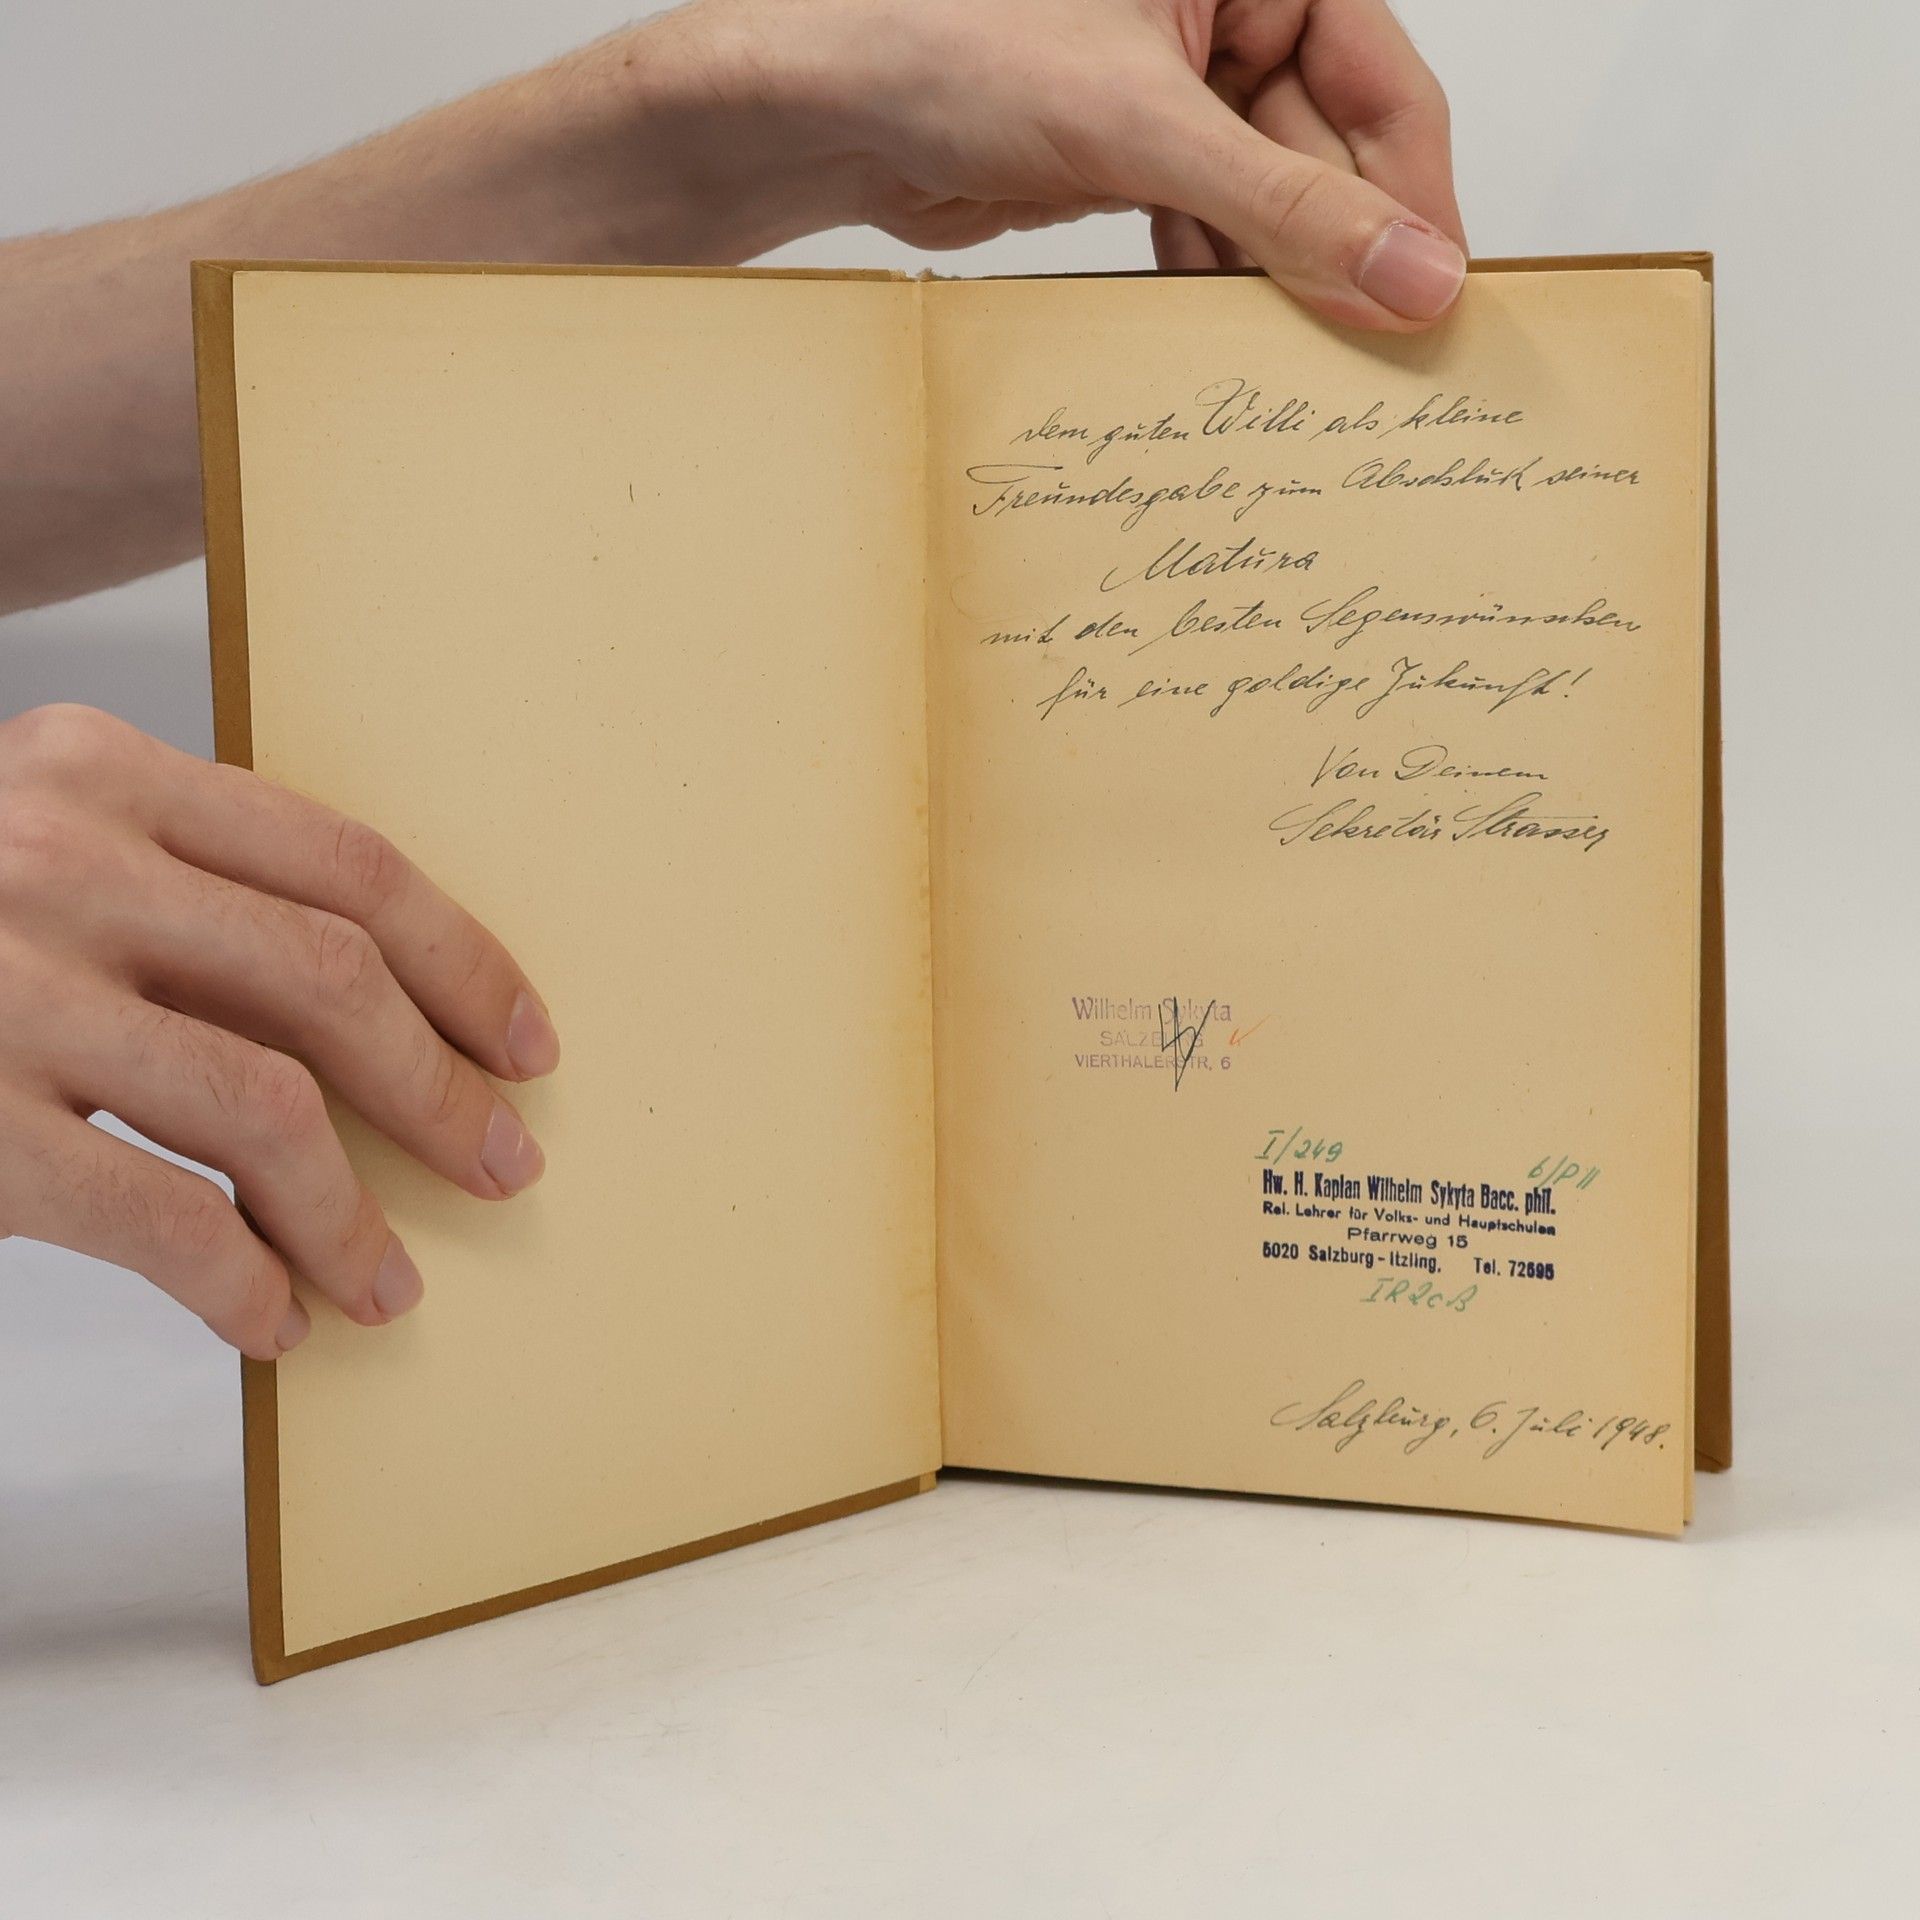 dem guten Willi als kleine
Freundesgabe zum Abschluß seiner
Matura
mit den besten Segenswünschen
für eine goldige Zukunft!
Von Deinem
Sekretär Strasser
Wilhelm Sykyta
SALZBURG
VIERTHALERSTR. 6
I/249
6/P II
Hw. H. Kaplan Wilhelm Sykyta Bacc. phil.
Rel. Lehrer für Volks- und Hauptschulen
Pfarrweg 15
5020 Salzburg-Itzling, Tel. 72595
Salzburg, 6. Juli 1948.